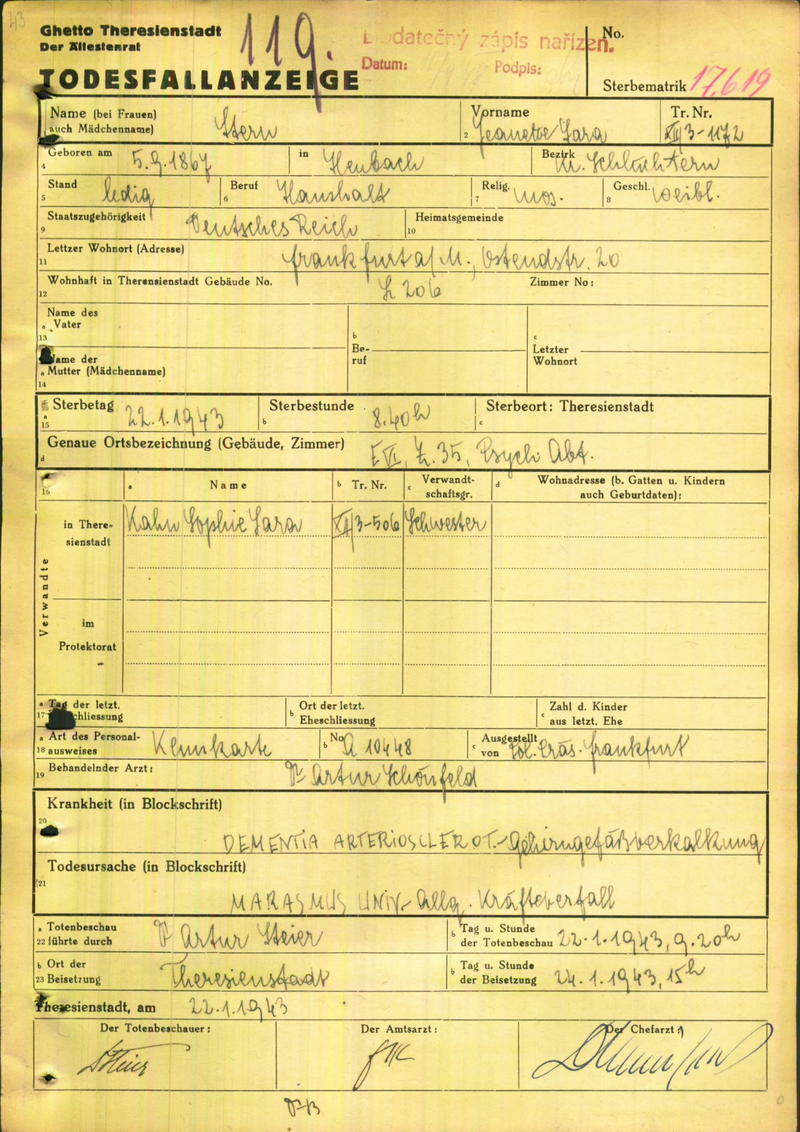 43
Ghetto Theresienstadt
Der Ältestenrat
119.
datečný zápis nařízen.
Datum:
Podpis:
No.
TODESFALLANZEIGE
Sterbematrik 17619
Name (bei Frauen) auch Mädchenname) Stern
2 Vorname Jeanette Sara
Tr. Nr. XII/3-1172
4 Geboren am 5.9.1867 in Heubach Bezirk Schlüchtern
5 Stand ledig
6 Beruf Haushalt
7 Relig. mos.
8 Geschl. weibl.
9 Staatszugehörigkeit Deutsches Reich
10 Heimatsgemeinde
11 Lettzer Wohnort (Adresse) Frankfurt a/M., Ostendstr. 20
12 Wohnhaft in Therensienstadt Gebäude No. L 206 Zimmer No:
13 a Name des Vater
b Beruf
c Letzter Wohnort
14 a Name der Mutter (Mädchenname)
15 a Sterbetag 22.1.1943
b Sterbestunde 8.40h
c Sterbeort: Theresienstadt
d Genaue Ortsbezeichnung (Gebäude, Zimmer) E VI, Z. 35, Psych Abt.
16 a Name b Tr. Nr. c Verwandtschaftsgr. d Wohnadresse (b. Gatten u. Kindern auch Geburtdaten):
Verwandte
in Theresienstadt Kahn Sophie Sara XII/3-506 Schwester
im Protektorat
17 a Tag der letzt. Eheschliessung
b Ort der letzt. Eheschliessung
c Zahl d. Kinder aus letzt. Ehe
18 a Art des Personalausweises Kennkarte
b No. A 10448
c Ausgestellt von Pol. Präs. Frankfurt
19 Behandelnder Arzt: Dr Artur Schönfeld
20 Krankheit (in Blockschrift)
DEMENTIA ARTERIOSCLEROT.-Gehirngefäßverkalkung
21 Todesursache (in Blockschrift)
MARASMUS UNIV-allg. Kräfteverfall
22 a Totenbeschau führte durch Dr Artur Steier
b Tag u. Stunde der Totenbeschau 22.1.1943, 9.20h
23 b Ort der Beisetzung Theresienstadt
b Tag u. Stunde der Beisetzung 24.1.1943, 15h
Theresienstadt, am 22.1.1943
Der Totenbeschauer:
Der Amtsarzt:
Der Chefarzt: